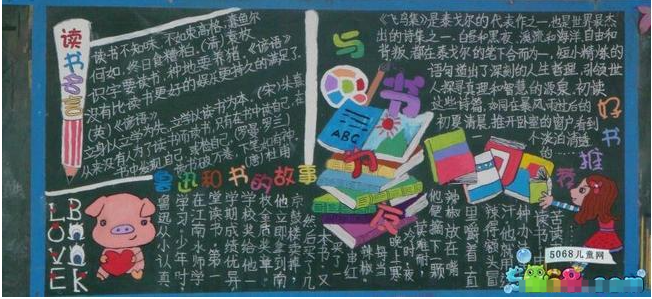 读书名言
读书不知味,不如束高格;蠹鱼尔
何如,终日食糟粕。(清)袁枚
识字要读书,种地要养猪《谚语》
没有比读书更好的娱乐更持久的满足了
(英)《谚语》
立身以立学为先,立学以读书为本。(宋)朱熹
从来没有人为了读书而读书,只有在书中读自己,在
书中发现自己,或检查自己(罗曼·罗兰)
读书破万卷,下笔如有神。(唐)杜甫
与书为友
ABC
《飞鸟集》是泰戈尔的代表作之一,也是世界最杰
出的诗集之一。白昼和黑夜、溪流和海洋、自由和
背叛,都在泰戈尔的笔下合而为一,短小精炼的
语句道出了深刻的人生哲理,引领世
人探寻真理和智慧的源泉。初读
这些诗篇,如同在暴风雨过后的
初夏清晨,推开卧室的窗户,看到
一个淡泊清透
的
好书推荐
鲁迅和书的故事
鲁迅从小认真
学习。少年时,
在江南水师学
堂读书,第一
学期成绩优异,
学校奖给他一
枚金质奖章。
他立即拿到南
京鼓楼街头
卖掉,然后买了几
本书,又
买了一串红
辣椒。每当
晚上寒
冷时,夜
读难耐,
他便摘下一颗
辣椒,放在嘴
里嚼着,直
辣得额头冒
汗。他就用
这种办法
读书
苦读
LOVE
BOOK
5068儿童网